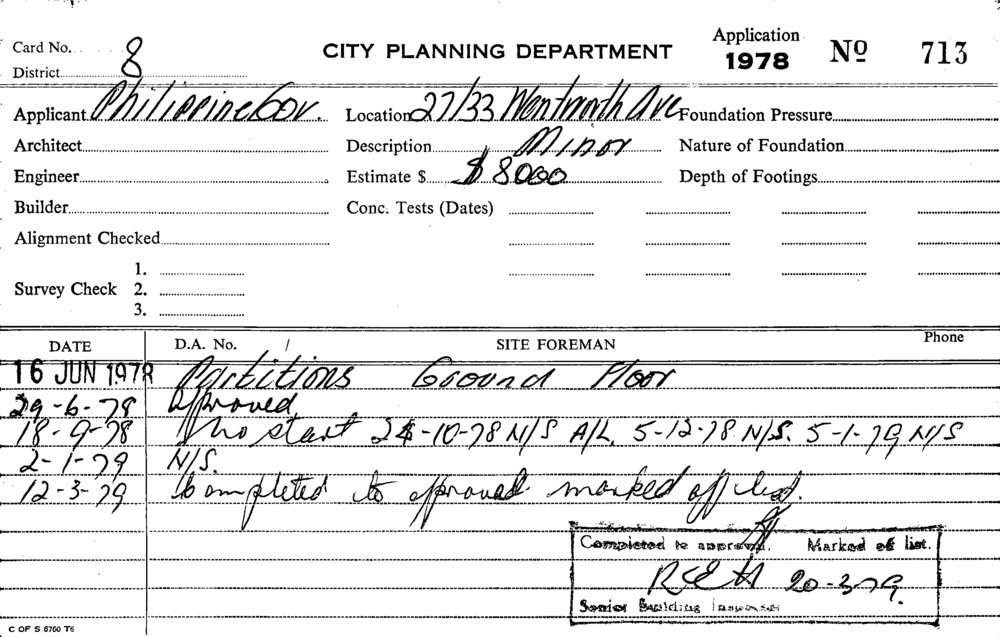 Card No. 8 CITY PLANNING DEPARTMENT Application 1978 Nº 713
District
Applicant Philippine Gov. Location 27/33 Wentworth Ave Foundation Pressure
Architect Description Minor Nature of Foundation
Engineer Estimate $ $8000 Depth of Footings
Builder Conc. Tests (Dates)
Alignment Checked
1.
Survey Check 2.
3.
DATE D.A. No. / SITE FOREMAN Phone
16 JUN 1978 Partitions Ground Floor
29-6-78 Approved
18-9-78 No start 24-10-78 N/S A/L. 5-12-78 N/S. 5-1-79 N/S
2-1-79 N/S.
12-3-79 Completed to approval marked off list.
Completed to approval. Marked of list.
20-3-79.
Senior Building Inspector
C OF S 6760 T6